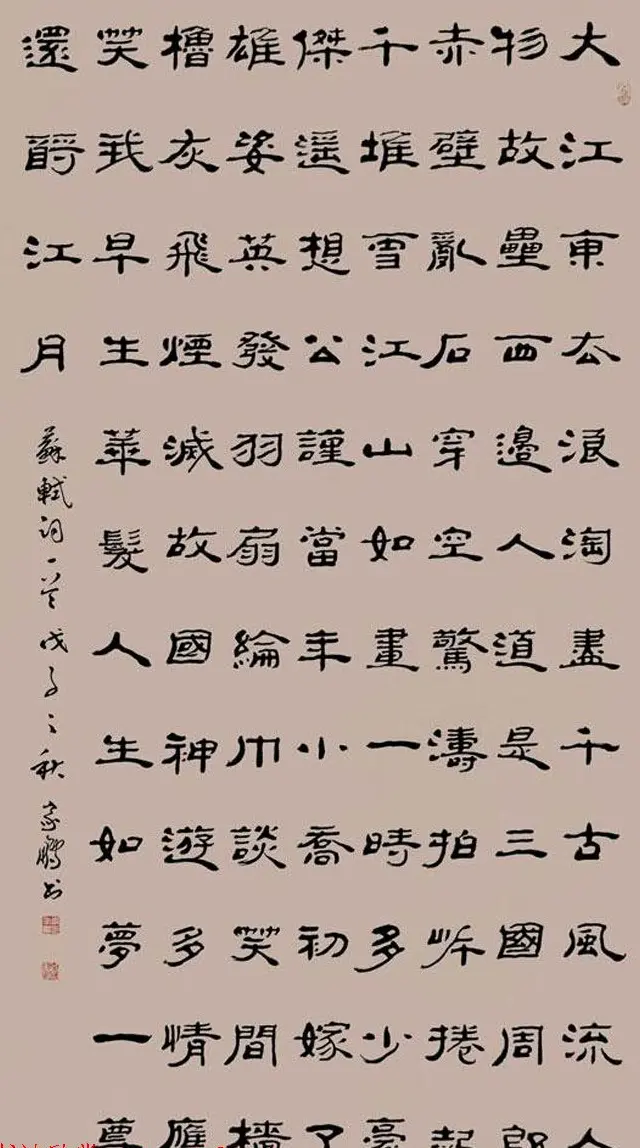 大江東去浪淘盡千古風流人
物故壘西邊人道是三國周郎
赤壁亂石穿空驚濤拍岸捲起
千堆雪江山如畫一時多少豪
傑遥想公謹當年小喬初嫁了
雄姿英發羽扇綸巾談笑間檣
櫓灰飛煙滅故國神遊多情應
笑我早生華髮人生如夢一尊
還酹江月
蘇軾詞一首戊子之秋家鵬书